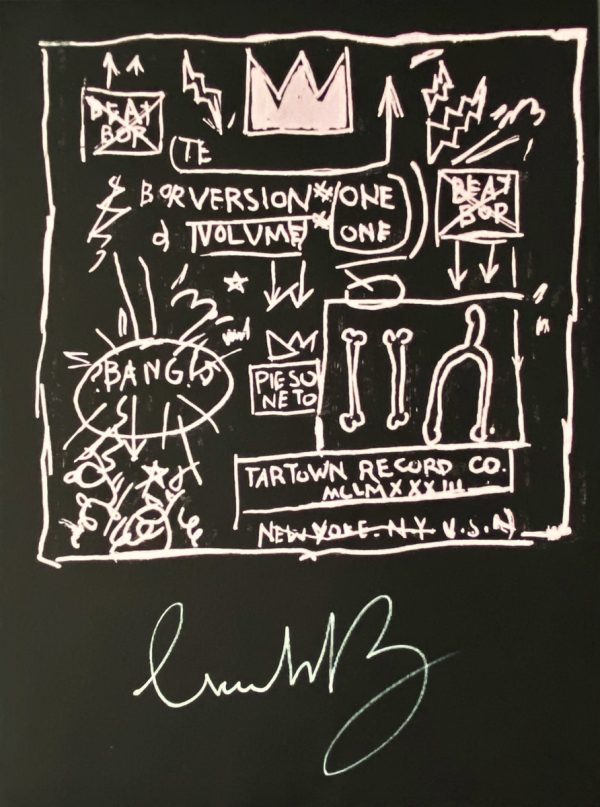 BEAT
BOR
(TE
BOR VERSION* ONE
d VOLUME* ONE
BEAT
BOR
?BANG!
PIESO
NETO
TARTOWN RECORD CO.
MCLMXXXIII
NEW YORK. N.Y. U.S.